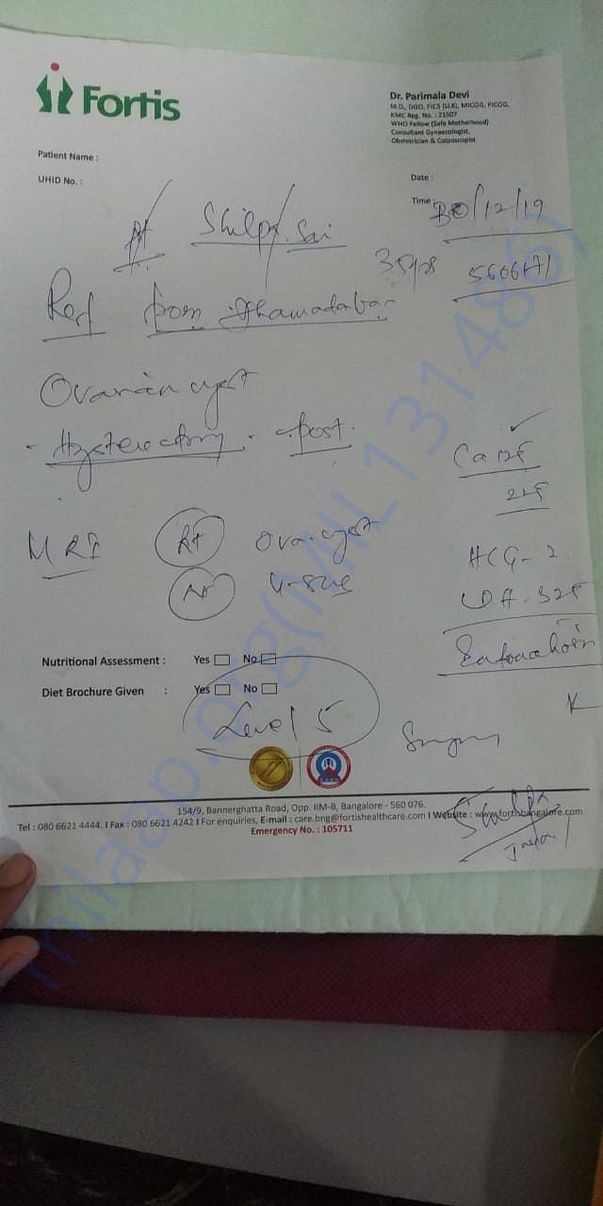 Fortis
Dr. Parimala Devi
M.D., DGO, FICS (U.K), MICOG, FICOG,
KMC Reg. No. : 21507
WHO Fellow (Safe Motherhood)
Consultant Gynaecologist,
Obstetrician & Colposcopist
Patient Name :
UHID No. :
Date :
Time :
30/12/19
Pt Shilp Sai
35yrs 560617
Ref from
Ovarian cyst
- Hysterectomy - post.
Ca 125
MRI Rt Ova. cyst
HCG - 2
LDH - 325
Nutritional Assessment : Yes No
Diet Brochure Given : Yes No
Level 5
154/9, Bannerghatta Road, Opp. IIM-B, Bangalore - 560 076.
Tel : 080 6621 4444. I Fax : 080 6621 4242 I For enquiries, E-mail : care.bng@fortishealthcare.com I Website : www.fortisbangalore.com
Emergency No. : 105711
milaap.org(MIL131486)